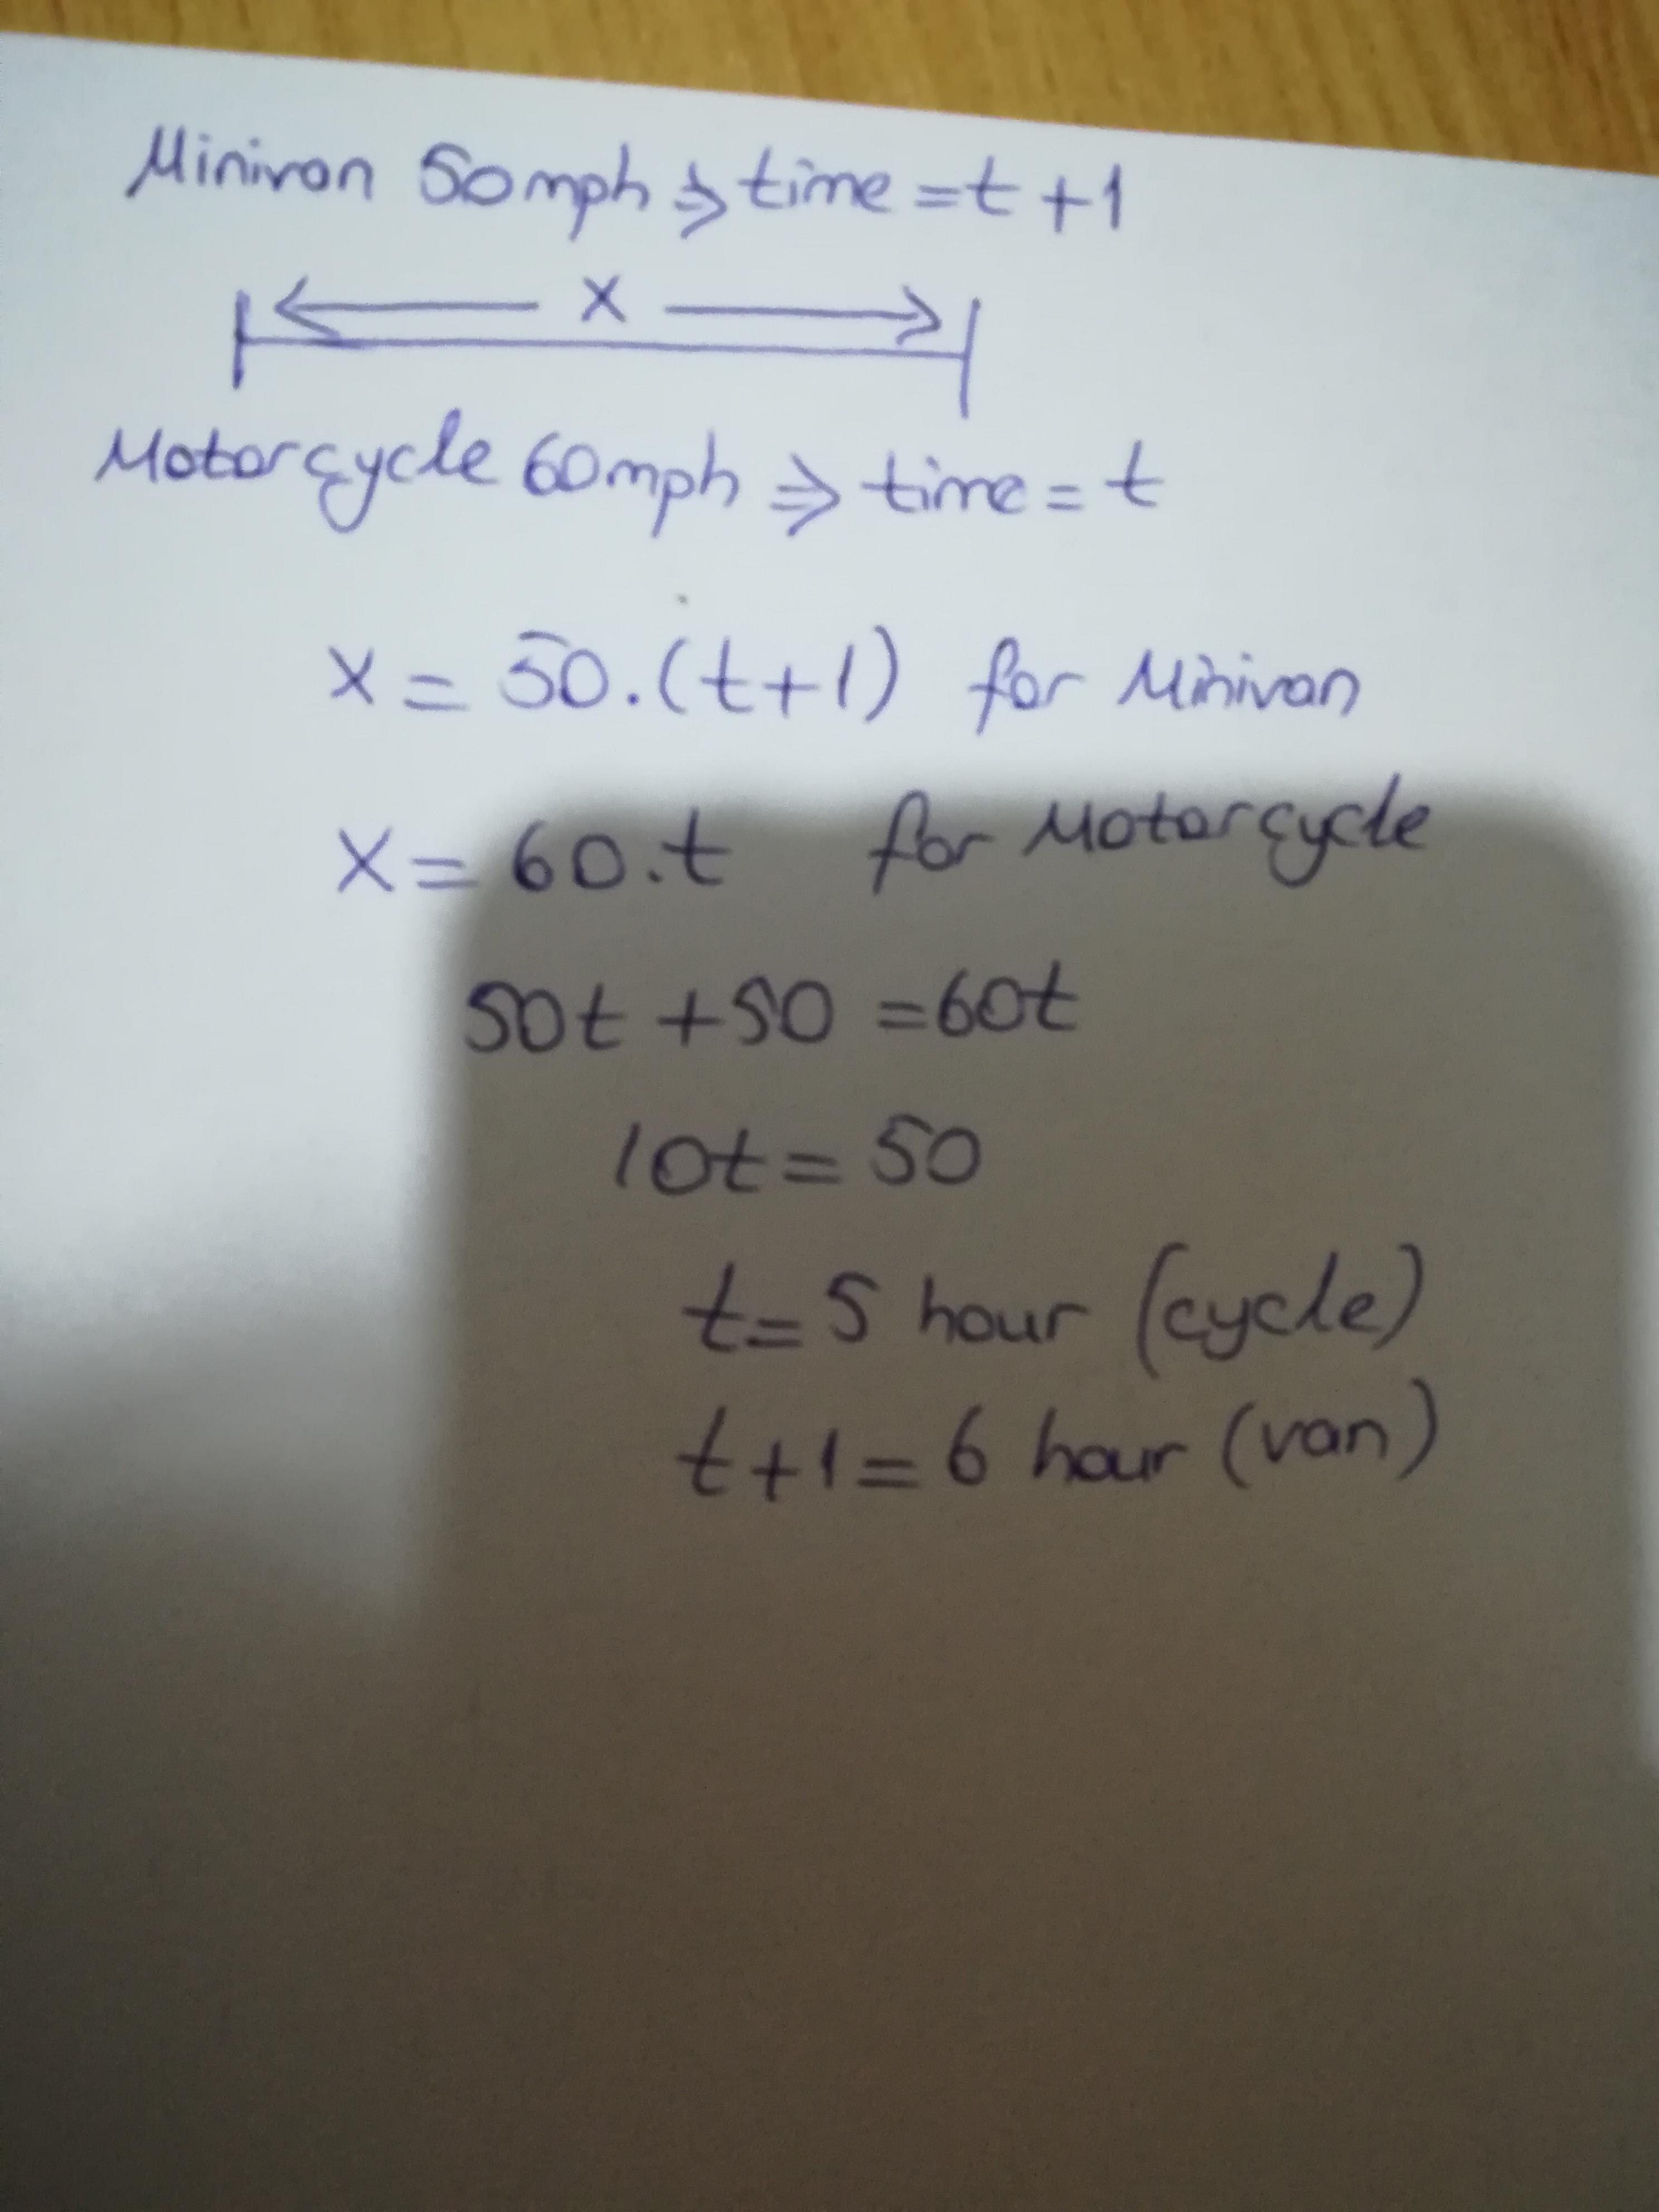 Minivan 50mph ⇒ time = t + 1
x
Motorcycle 60mph ⇒ time = t
x = 50.(t+1) for Minivan
x = 60.t for Motorcycle
50t + 50 = 60t
10t = 50
t = 5 hour (cycle)
t + 1 = 6 hour (van)